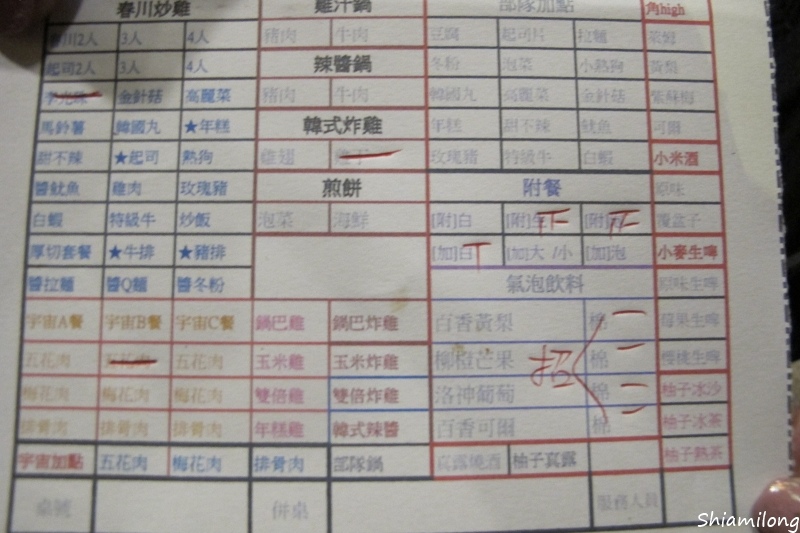 春川炒雞 雞汁鍋 部隊加點 角high
春川2人 3人 4人 豬肉 牛肉 豆腐 起司片 拉麵 萊姆
起司2人 3人 4人 辣醬鍋 冬粉 泡菜 小熱狗 黃梨
金針菇 高麗菜 豬肉 牛肉 韓國丸 高麗菜 金針菇 紫蘇梅
馬鈴薯 韓國丸 ★年糕 韓式炸雞 年糕 甜不辣 魷魚 可爾
甜不辣 ★起司 熱狗 雞翅 玫瑰豬 特級牛 白蝦 小米酒
醬魷魚 雞肉 玫瑰豬 煎餅 附餐 原味
白蝦 特級牛 炒飯 泡菜 海鮮 [附]白 [附]生 [附] 覆盆子
厚切套餐 ★牛排 ★豬排 [加]白 [加]大/小 [加]泡 小麥生啤
醬拉麵 醬Q麵 醬冬粉 氣泡飲料 原味生啤
宇宙A餐 宇宙B餐 宇宙C餐 鍋巴雞 鍋巴炸雞 百香黃梨 棉 莓果生啤
五花肉 五花肉 五花肉 玉米雞 玉米炸雞 柳橙芒果 棉 櫻桃生啤
梅花肉 梅花肉 梅花肉 雙倍雞 雙倍炸雞 洛神葡萄 棉 柚子冰沙
排骨肉 排骨肉 排骨肉 年糕雞 韓式辣醬 百香可爾 棉 柚子冰茶
宇宙加點 五花肉 梅花肉 排骨肉 部隊鍋 真露燒酒 柚子真露 柚子熱茶
桌號 併桌 服務人員
招
Shiamilong